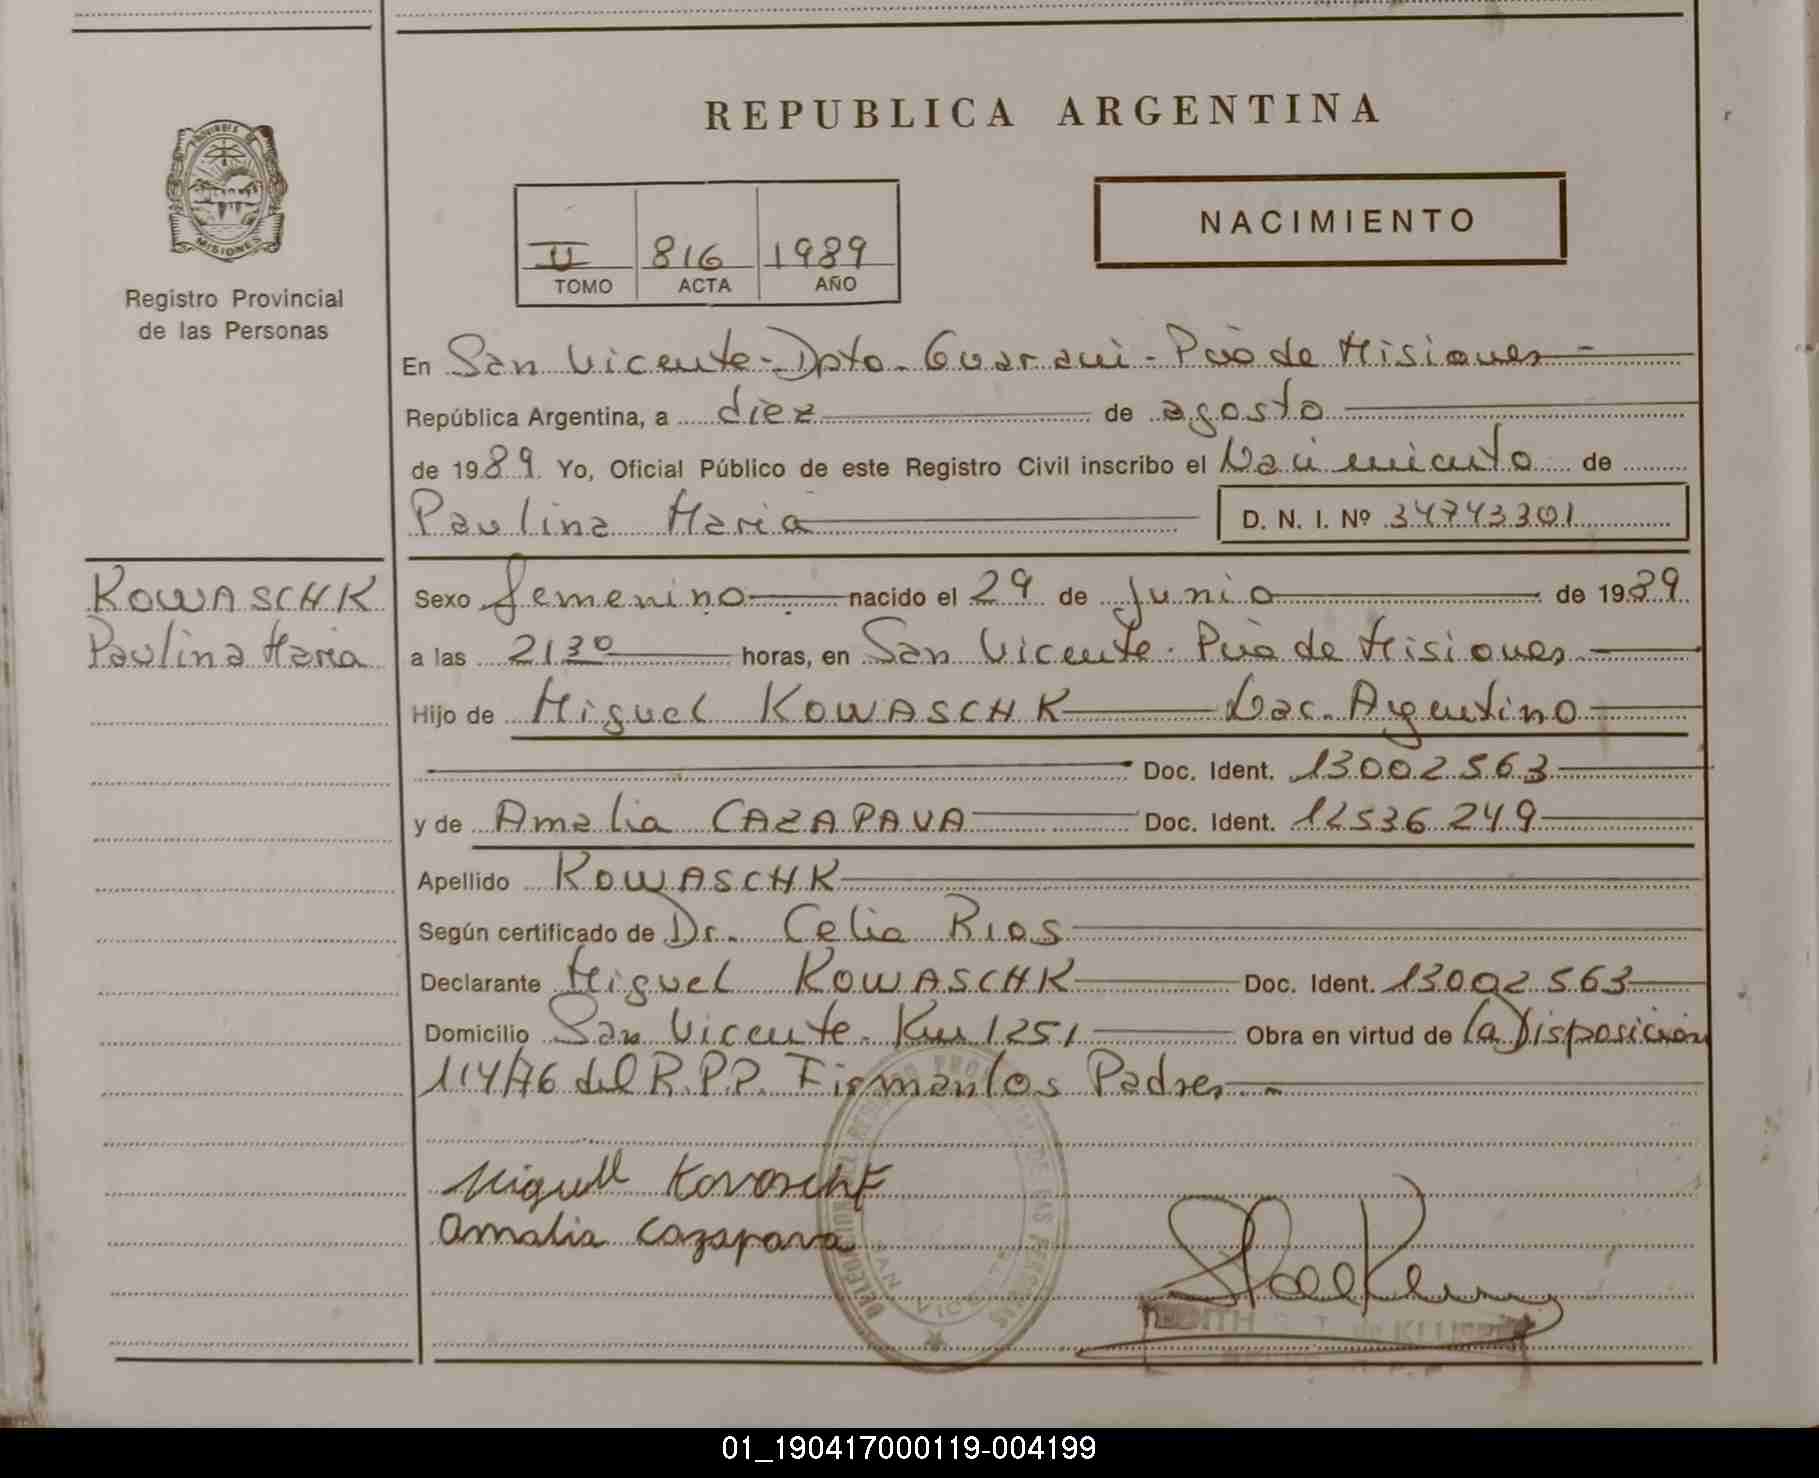 REPUBLICA ARGENTINA
PROVINCIA DE
MISIONES
Registro Provincial
de las Personas
NACIMIENTO
II 816 1989
TOMO ACTA AÑO
En San Vicente - Dpto - Guarani - Pcia de Misiones -
República Argentina, a diez de agosto
de 1989 Yo, Oficial Público de este Registro Civil inscribo el Nacimiento de
Paulina Maria D. N. I. Nº 34743301
KOWASCHK
Paulina Maria
Sexo femenino nacido el 29 de Junio de 1989
a las 2130 horas, en San Vicente - Pcia de Misiones
Hijo de Miguel KOWASCHK Nac. Argentino
Doc. Ident. 13002563
y de Amalia CAZAPAVA Doc. Ident. 12536249
Apellido KOWASCHK
Según certificado de Dr. Celia Rios
Declarante Miguel KOWASCHK Doc. Ident. 13002563
Domicilio San Vicente - Km 1251 Obra en virtud de la Disposición
114/76 del R.P.P. Firman los Padres -
Miguel
Amalia Cazapava
DE LAS PERSONAS
SAN VICENTE
01_190417000119-004199